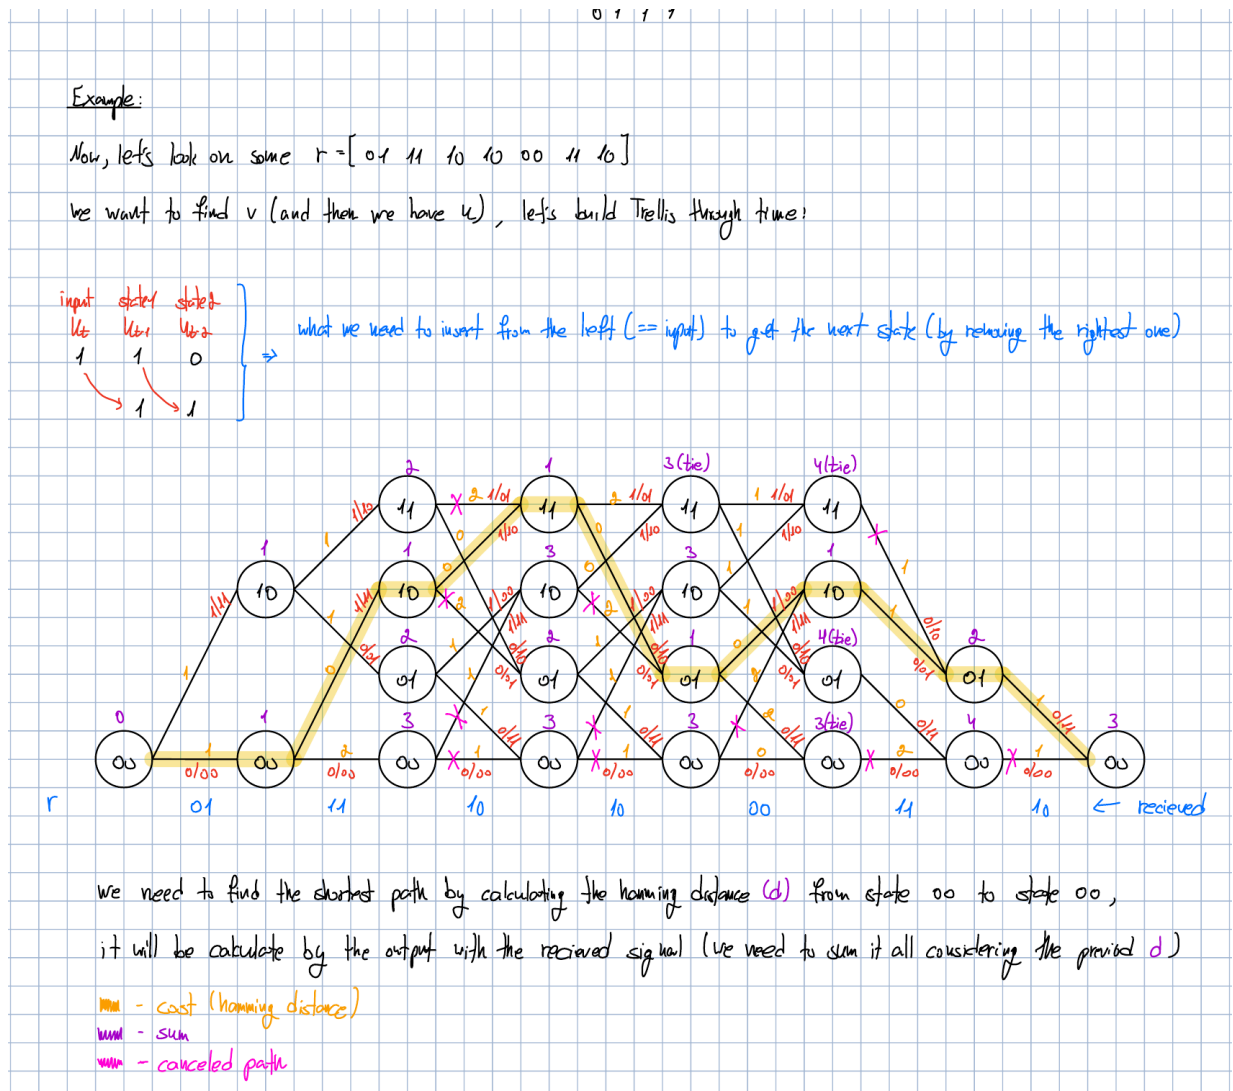 0 1 1 1
Example:
Now, let's look on some r=[01 11 10 10 00 11 10]
we want to find v (and then we have u), let's build Trellis through time:
input state1 state2
Ut Ut-1 Ut-2
1 1 0
⇒ what we need to insert from the left (== input) to get the next state (by removing the rightest one)
1 1
2 1 3(tie) 4(tie)
11 2 1/01 11 2 1/01 11 1 1/01 11
1/10 0 1/10 0 1/10 1 1/10 1
1 1 3 3 1
10 1/11 10 10 10 10
1 0 2 2 1 1 0/10
2 2 1 4(tie) 2
1/11 1 0/01 01 01 01 01 0/01 01
0 1 3 3 3 3(tie) 4 3
00 1 0/00 00 2 0/00 00 1 0/00 00 1 0/00 00 0 0/00 00 2 0/00 00 1 0/00 00
r 01 11 10 10 00 11 10 ← recieved
we need to find the shortest path by calculating the hamming distance (d) from state 00 to state 00,
it will be calculate by the output with the recieved signal (we need to sum it all considering the previod d)
- cost (hamming distance)
- sum
- canceled path